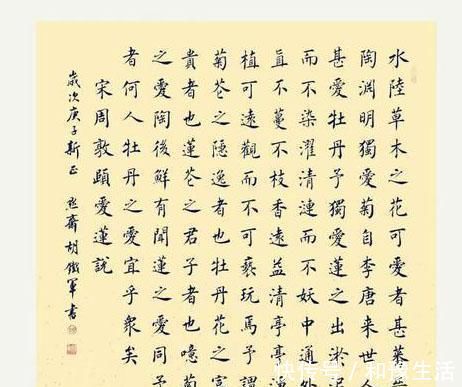 水陸草木之花可愛者甚蕃
陶渊明獨愛菊自李唐来世人
甚愛牡丹予獨愛蓮之出淤
而不染濯清漣而不妖中通外
直不蔓不枝香遠益清亭亭
植可遠觀而不可褻玩焉予謂
菊花之隱逸者也牡丹花之富
貴者也蓮花之君子者也噫菊
之愛陶後鮮有聞蓮之愛同予
者何人牡丹之愛宜乎衆矣
宋周敦頤愛蓮說
歲次庚子新正 齋胡鐵軍書
快传号/和豫生活